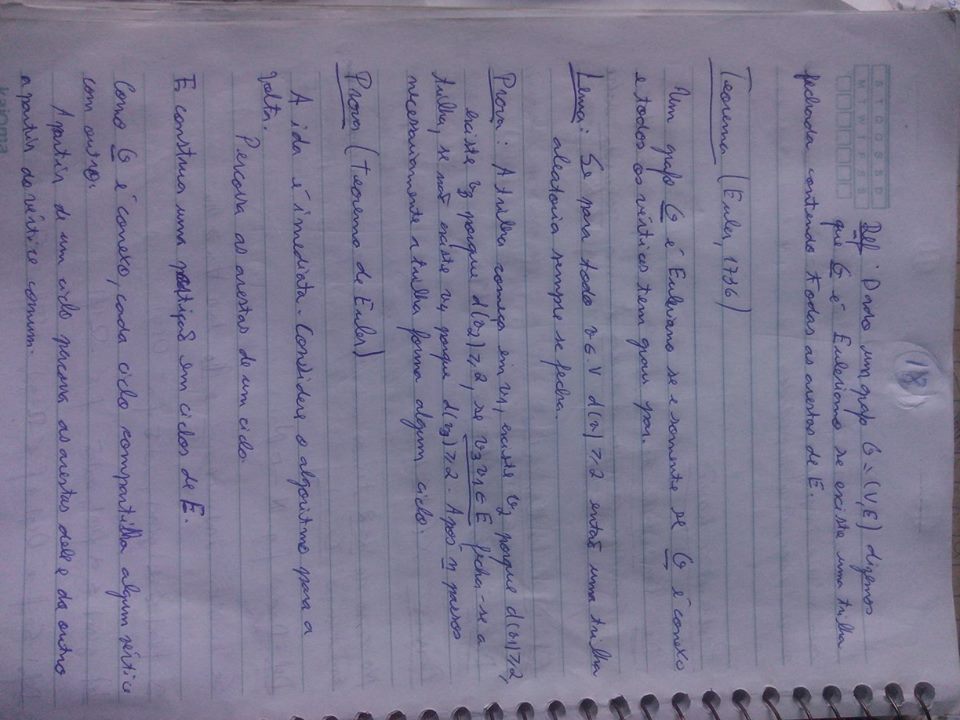 18
S T Q Q S S D
M T W T F S S
Def: Dado um grafo G = (V, E) dizemos
que G é Euleriano se existe uma trilha
fechada contendo todas as arestas de E.
Teorema (Euler, 1736)
Um grafo G é Euleriano se e somente se G é conexo
e todos os vértices tem grau par.
Lema: Se para todo v ∈ V d(v) ≥ 2 então uma trilha
aleatória sempre se fecha.
Prova: A trilha começa em v1, existe v2 porque d(v1) ≥ 2,
existe v3 porque d(v2) ≥ 2, se v3v1 ∈ E fecha-se a
trilha, se não existe v4 porque d(v3) ≥ 2. Após n passos
necessariamente a trilha forma algum ciclo.
Prova (Teorema de Euler)
A ida é imediata. Considere o algoritmo para a
volta.
Percorra as arestas de um ciclo.
E construa uma partição em ciclos de E.
Como G é conexo, cada ciclo compartilha algum vértice
com outro.
A partir de um ciclo percorra as arestas dele e do outro
a partir do vértice comum.